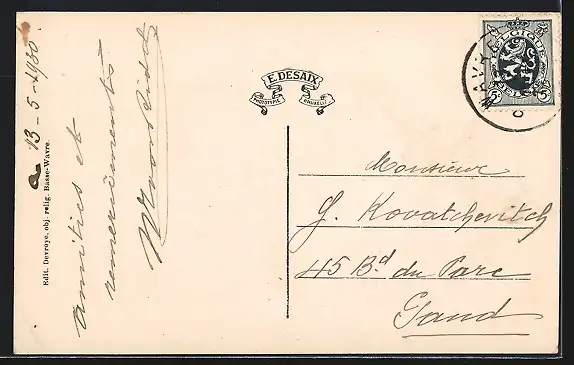 a 13-5-1930
amitiés et
remerciements
Edit. Devroye, obj. relig. Basse-Wavre.
E. DESAIX
PHOTOTYPIE BRUXELLES
BELGIQUE
5 5
WAV
Monsieur
J. Kovatchevitch
45 Bd du Parc
Gand